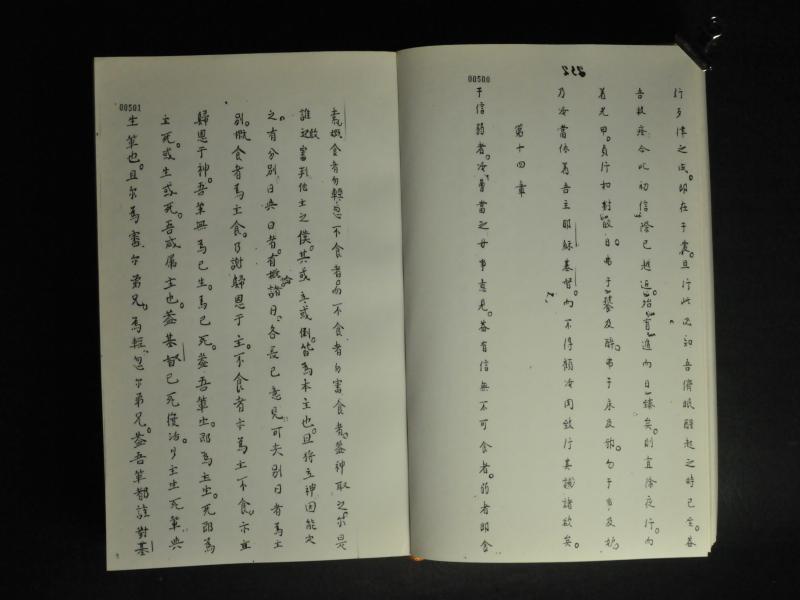 252
00500
行乃律之成。即在于裏。且行此因知吾儕眠醒起之時已至。蓋
吾救今比初信陰已越迫殆宵進向日臻矣。則宜除夜行。而
着光甲。貞行如對敵日弗于饕及醉。弗于床及勿于爭及妒。
乃冷當依着吾主耶穌基督。而不得顧冷肉致行其諸欲矣。
第十四章
于信弱者。冷當之毋爭意見。蓋有信無不可食者。弱者即食
00501
食者勿輕忽不食者。而不食者勿審食者。蓋神取之。尔是
誰敢審判他主之僕。其或立或倒。皆為本主也。且將立神因能定
之。有分別日與日者。有諸日。各長己意見可矣。別日者為主
別。食者為主食。乃謝歸恩于主。不食者亦為主不食。亦並
歸恩于神。吾輩無為己生。為己死。蓋吾輩生。即為主生。死即為
主死。或生或死。吾咸屬主也。蓋基督已死復活。以主生死輩與
生輩也。且尔為審尔弟兄。為輕忽尔弟兄。蓋吾輩都該對基